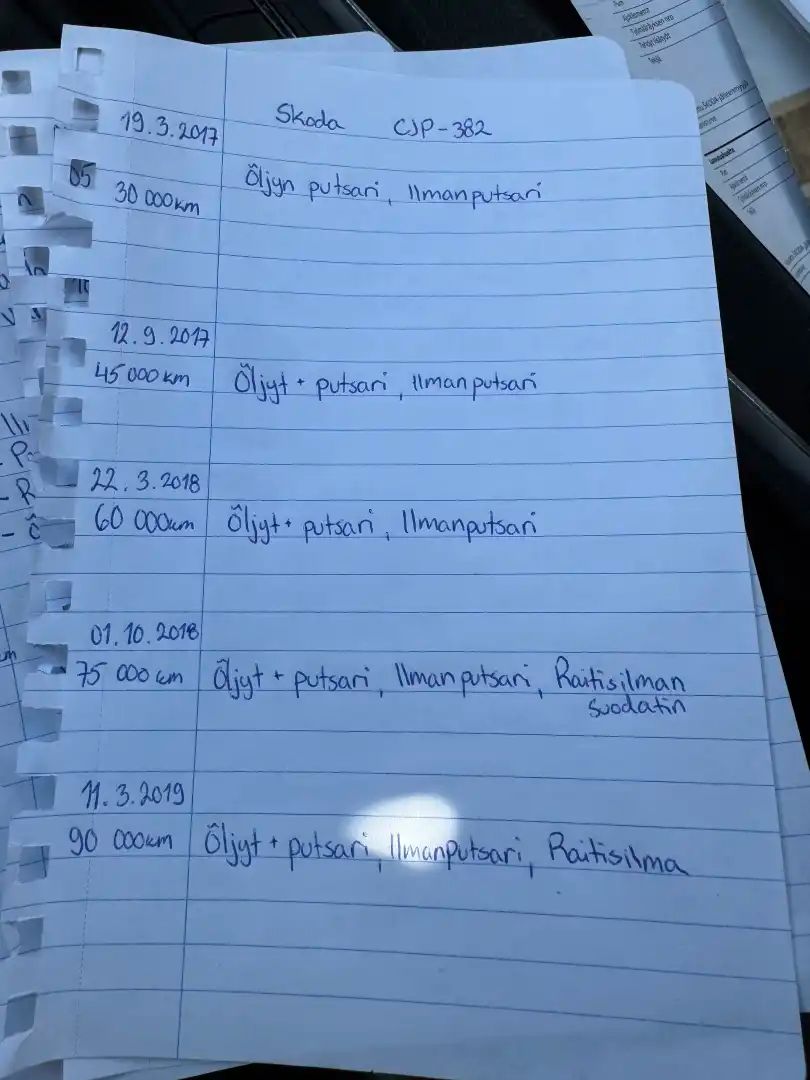 Skoda CJP-382
19.3.2017
Öljyn putsari, Ilmanputsari
30 000km
12.9.2017
45 000 km Öljyt + putsari, Ilmanputsari
22.3.2018
60 000km Öljyt + putsari, Ilmanputsari
01.10.2018
75 000 km Öljyt + putsari, Ilmanputsari, Raitisilman
suodatin
11.3.2019
90 000km Öljyt + putsari, Ilmanputsari, Raitisilma